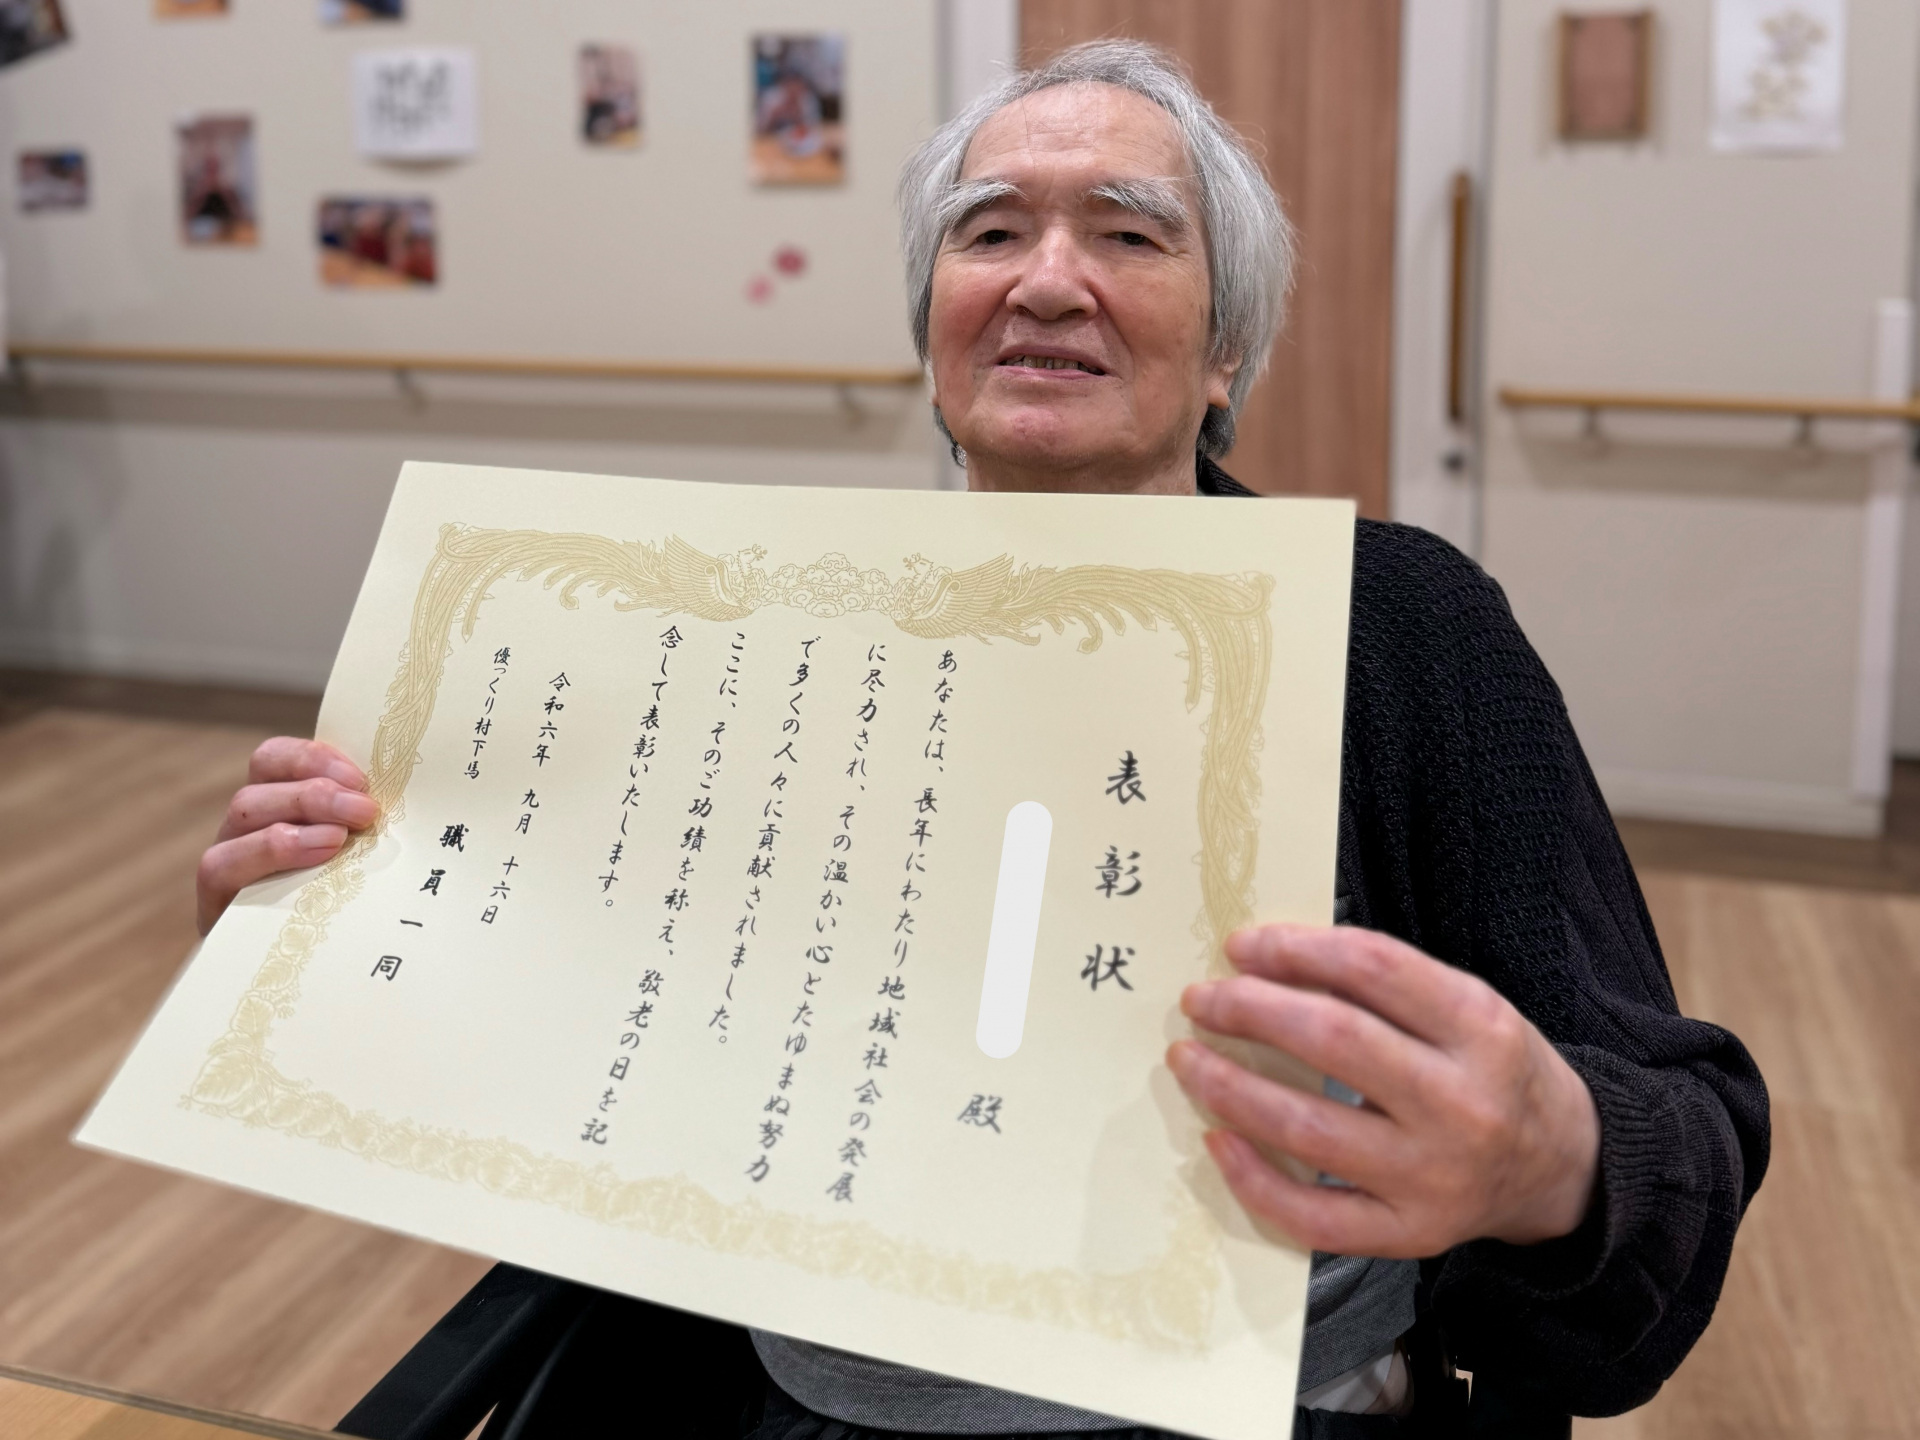 表彰状
殿
あなたは、長年にわたり地域社会の発展
に尽力され、その温かい心とたゆまぬ努力
で多くの人々に貢献されました。
ここに、そのご功績を称え、敬老の日を記
念して表彰いたします。
令和六年 九月 十六日
優っくり村下馬
職員一同